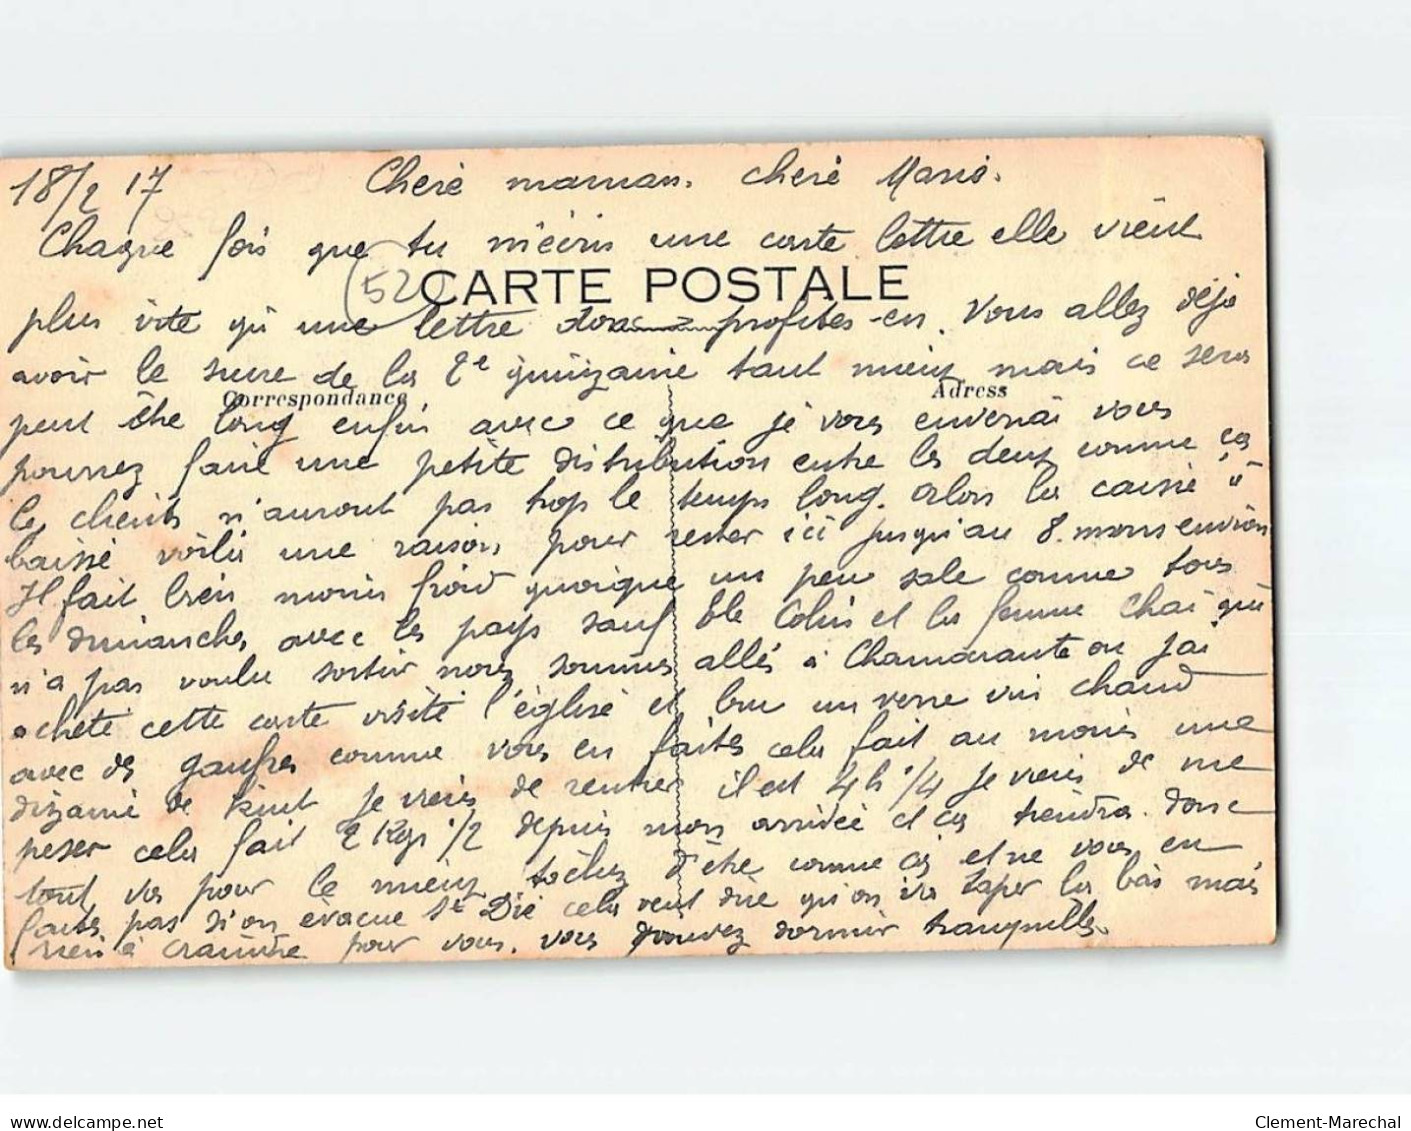 18/2 17 Cheré maman. cheré Marie.
Chaque fois que tu m'écris une carte lettre elle vient
(52) CARTE POSTALE
plus vite qu'une lettre donc profites-en. Vous allez déjà
avoir le sucre de la 2e quinzaine tant mieux mais ce sera
Correspondance Adress
peut être long enfin avec ce que je vous enverrai vous
pourrez faire une petite distribution entre les deux comme ça
les clients n'auront pas trop le temps long. Alors la caisse "
baisse voila une raison pour rester ici jusqu'au 8. mars environ
Il fait bien moins froid quoique un peu sale comme tous
les dimanches avec les pays sauf Colin et la femme qui
n'a pas voulu sortir nous sommes allés à Chamarante ou j'ai
acheté cette carte visité l'église et bu un verre vin chaud
avec des gaufres comme vous en faites cela fait au moins une
dizaine de Je viens de rentrer il est 4h 1/4 Je viens de me
peser cela fait 2 Kgs 1/2 depuis mon arrivée et ça tiendra. donc
tout va pour le mieux tachez d'être comme ça et ne vous en
faites pas si on évacue St Dié cela veut dire qu'on va taper la bas mais
rien à craindre pour vous. vous pouvez dormir tranquilles.
Clement-Marechal
www.delcampe.net